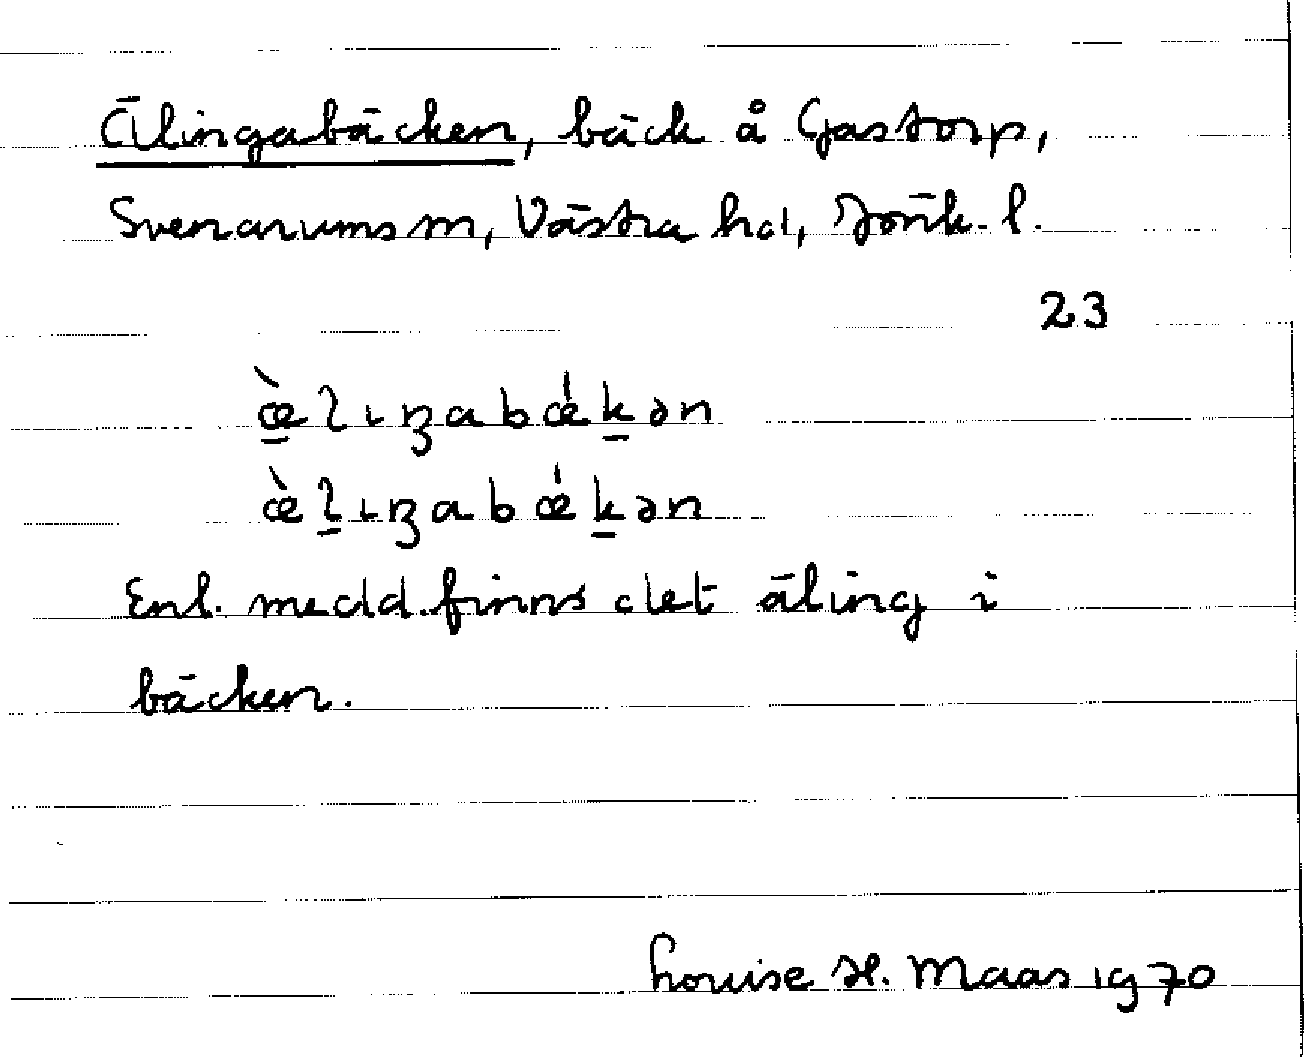 Älingabäcken, bäck å Gastorp,
Svenarums sn, Västra hd, Jönk. l.
23
æ̠̀lıŋabǽk̠ən
æ̀l̠ıŋabǽk̠ən
Enl. medd. finns det äling i
bäcken.
Louise H. Maas 1970